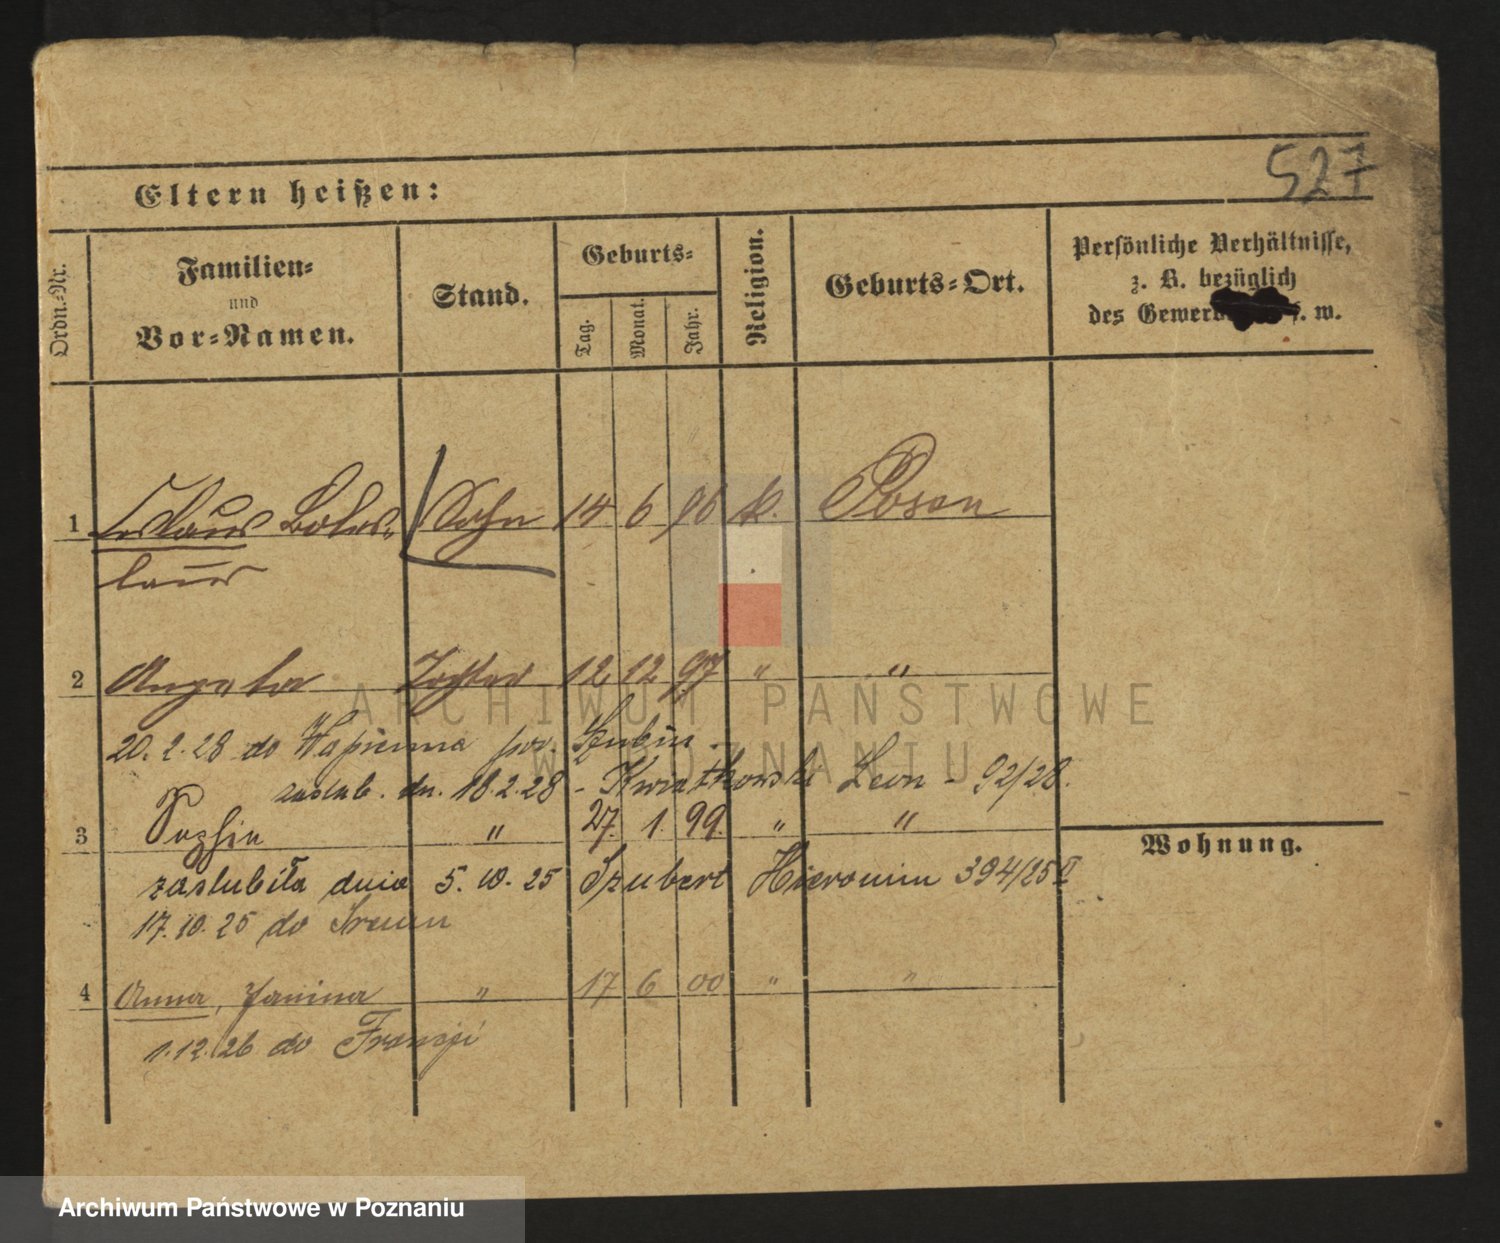 527
Eltern heißen:
Ordn.-Nr.
Familien- und Vor-Namen.
Stand.
Geburts-
Tag.
Monat.
Jahr.
Religion.
Geburts-Ort.
Persönliche Verhältnisse,
z. B. bezüglich
des Gewerb f. w.
1 Boles- Sohn 14 6 96 k. Posen
laus
2 Angela Tochter 12 12 97 " "
20. 2. 28 do Wapienna pow. Szubin
zaślub. dn. 18.2.28 - Kwiatkowski Leon - 92/28.
3 Sophie " 27. 1. 99. " "
Wohnung.
zaślubiła dnia 5. 10. 25 Szubert Hieronim 394/25 II
17.10.25 do Śremu
4 Anna, Janina " 17 6 00 " "
1.12.26 do Francji
ARCHIWUM PAŃSTWOWE
W POZNANIU
Archiwum Państwowe w Poznaniu